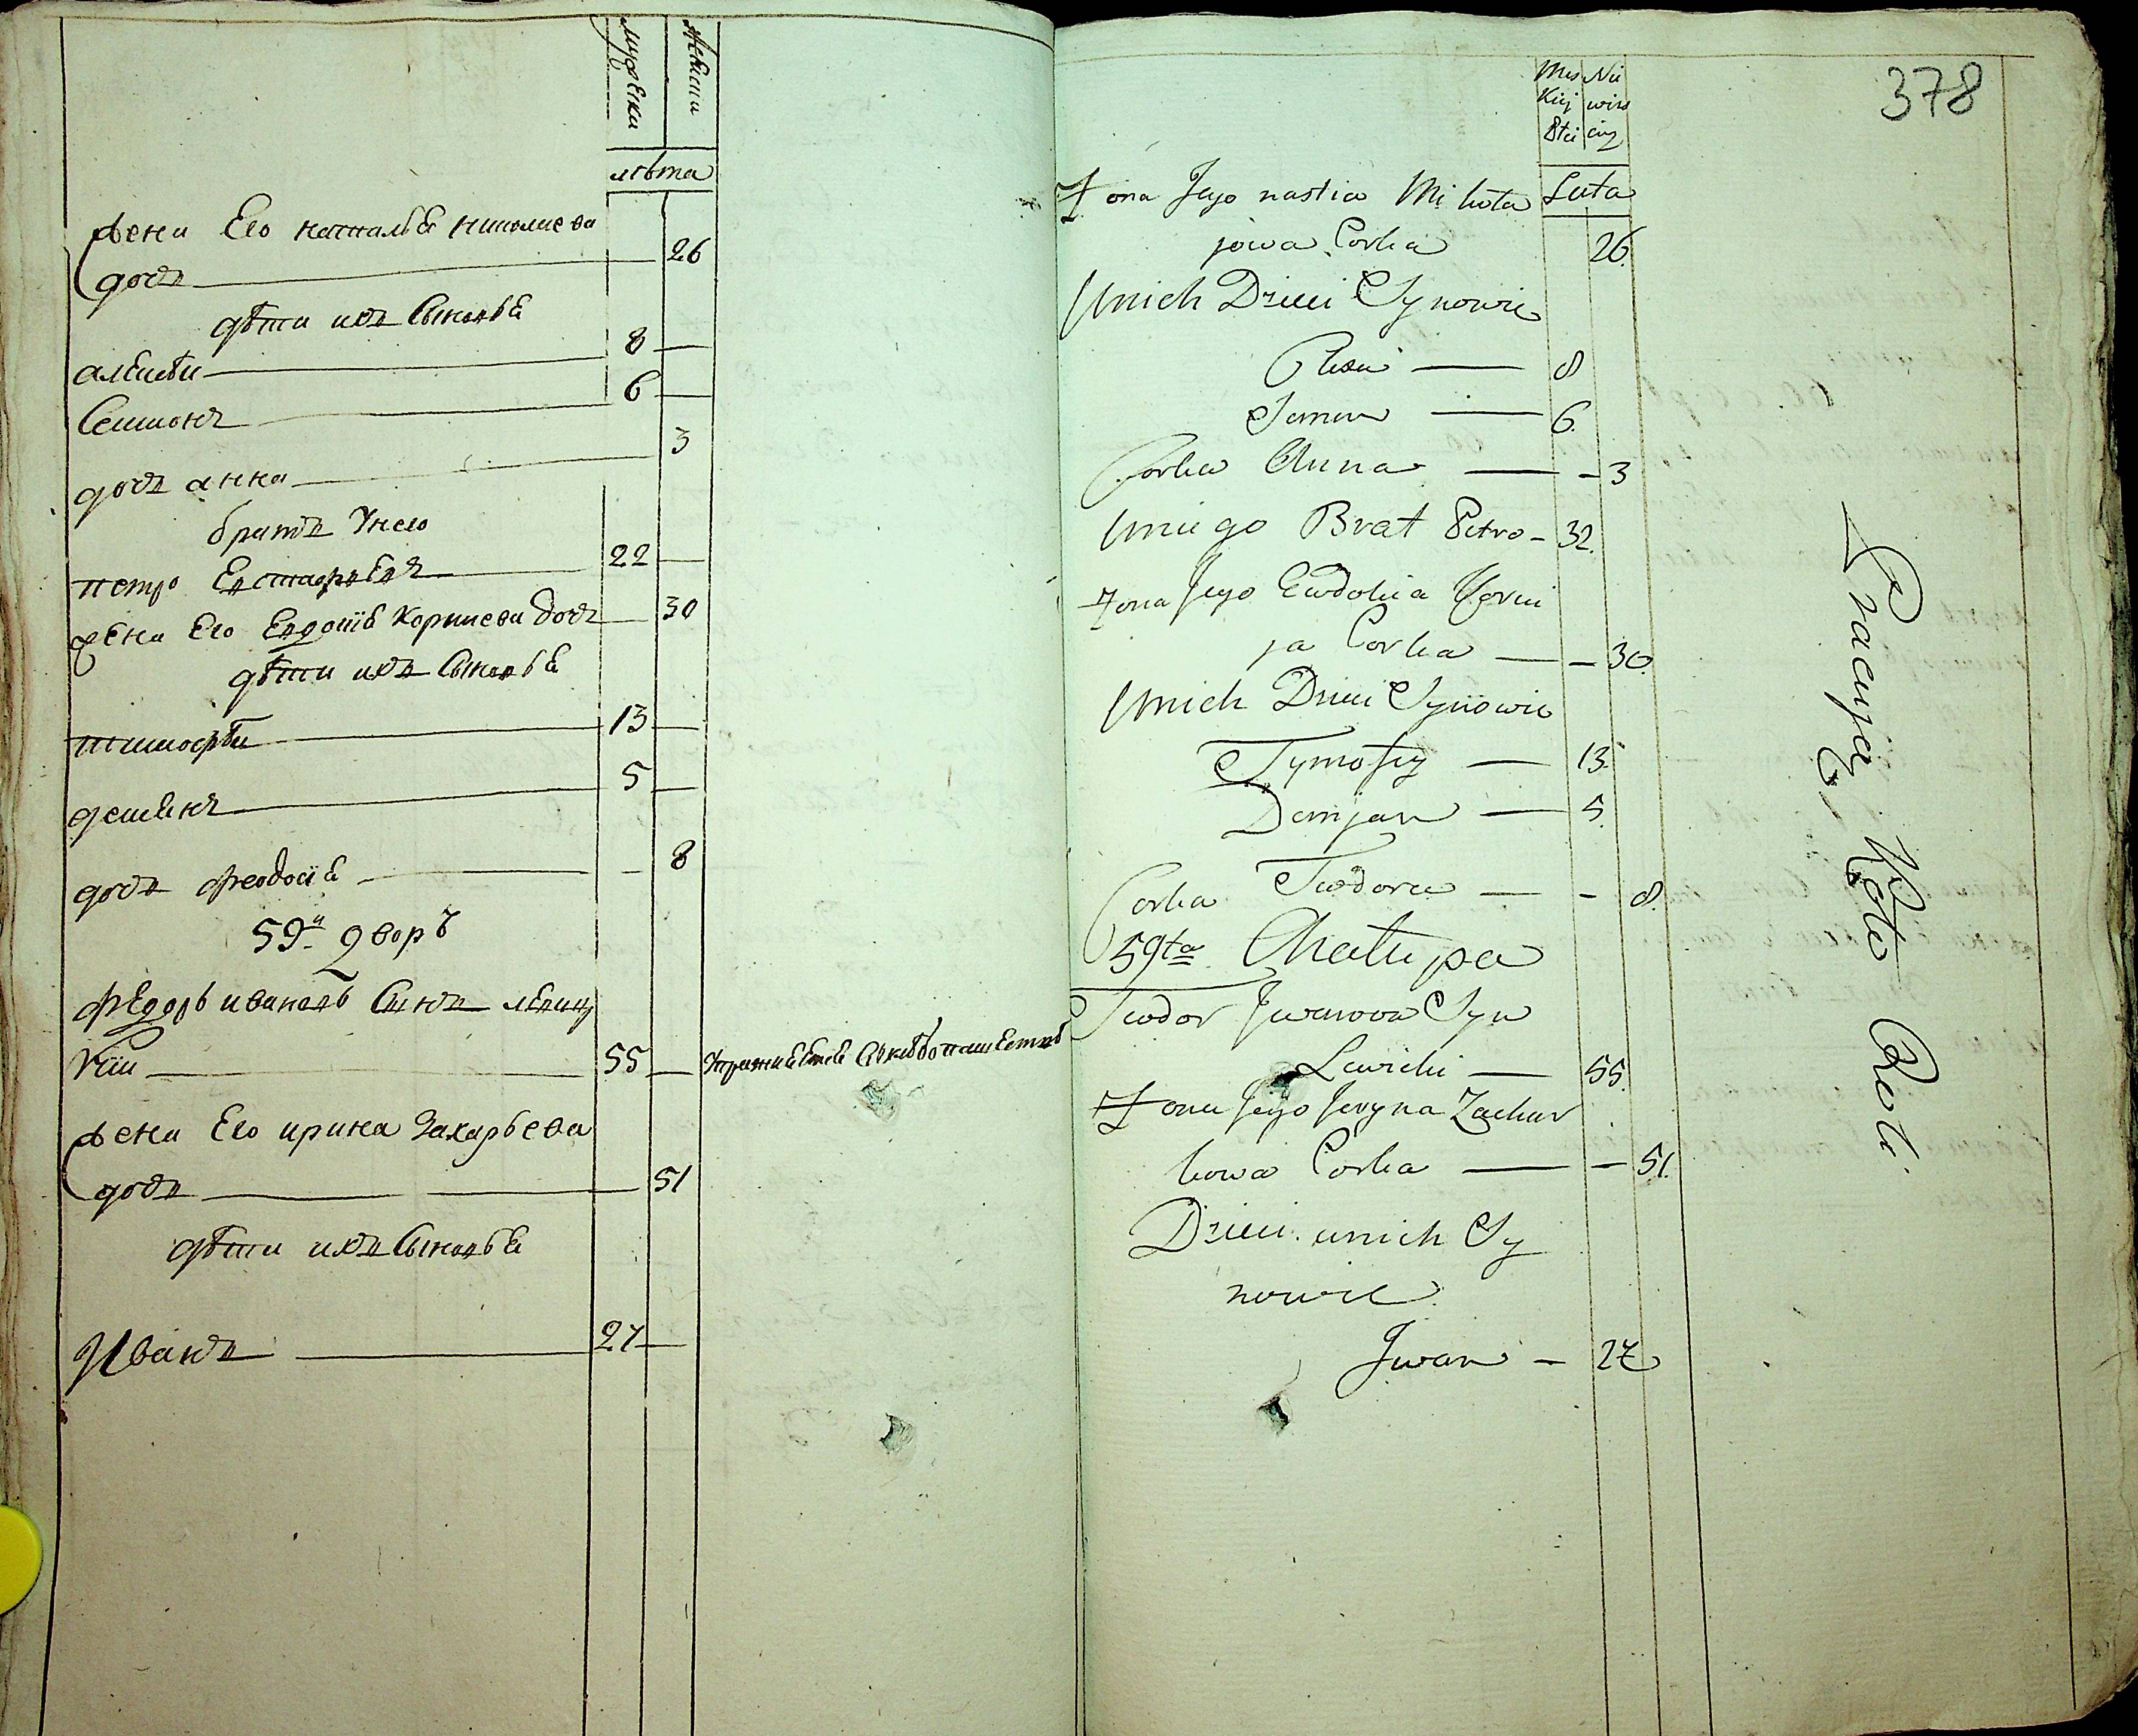 мужеска
женска
лѣта
жена Его наталья николаева
дочь 26
дѣти ихъ Сыновья
алексѣй 8
Семионъ 6
дочь анна 3
братъ Унего
петро Евстафьевъ 22
жена Его Евдокия Корнеева дочь 30
дѣти ихъ Сыновья
тимофѣй 13
демьянъ 5
дочь феодосия 8
59й дворъ
Федоръ ивановъ Сынъ левиц
кий 55
жена Его ирина Захарьева
дочь 51
дѣти ихъ Сыновья
Иванъ 27
378
Mes Nie
kiej wies
Płci ciey
Lata
Żona Jego nastia Mikoła
jowa Corka 26.
Unich Dzieci Synowie
8
Semen 6.
Corka Anna — - 3
Uniego Brat Petro - 32.
Żona Jego Ewdokia Korni
ja Corka — - 30.
Unich Dzieci Synowie
Tymofiy — 13.
Demjan — 5.
Corka Teodora — - 8.
59ta Chałupa
Teodor Jwanowa Syn
Lewicki — 55.
Żona Jego Jeryna Zachar
kowa Corka — - 51.
Dzieci unich Sy
nowie
Jwan - 27